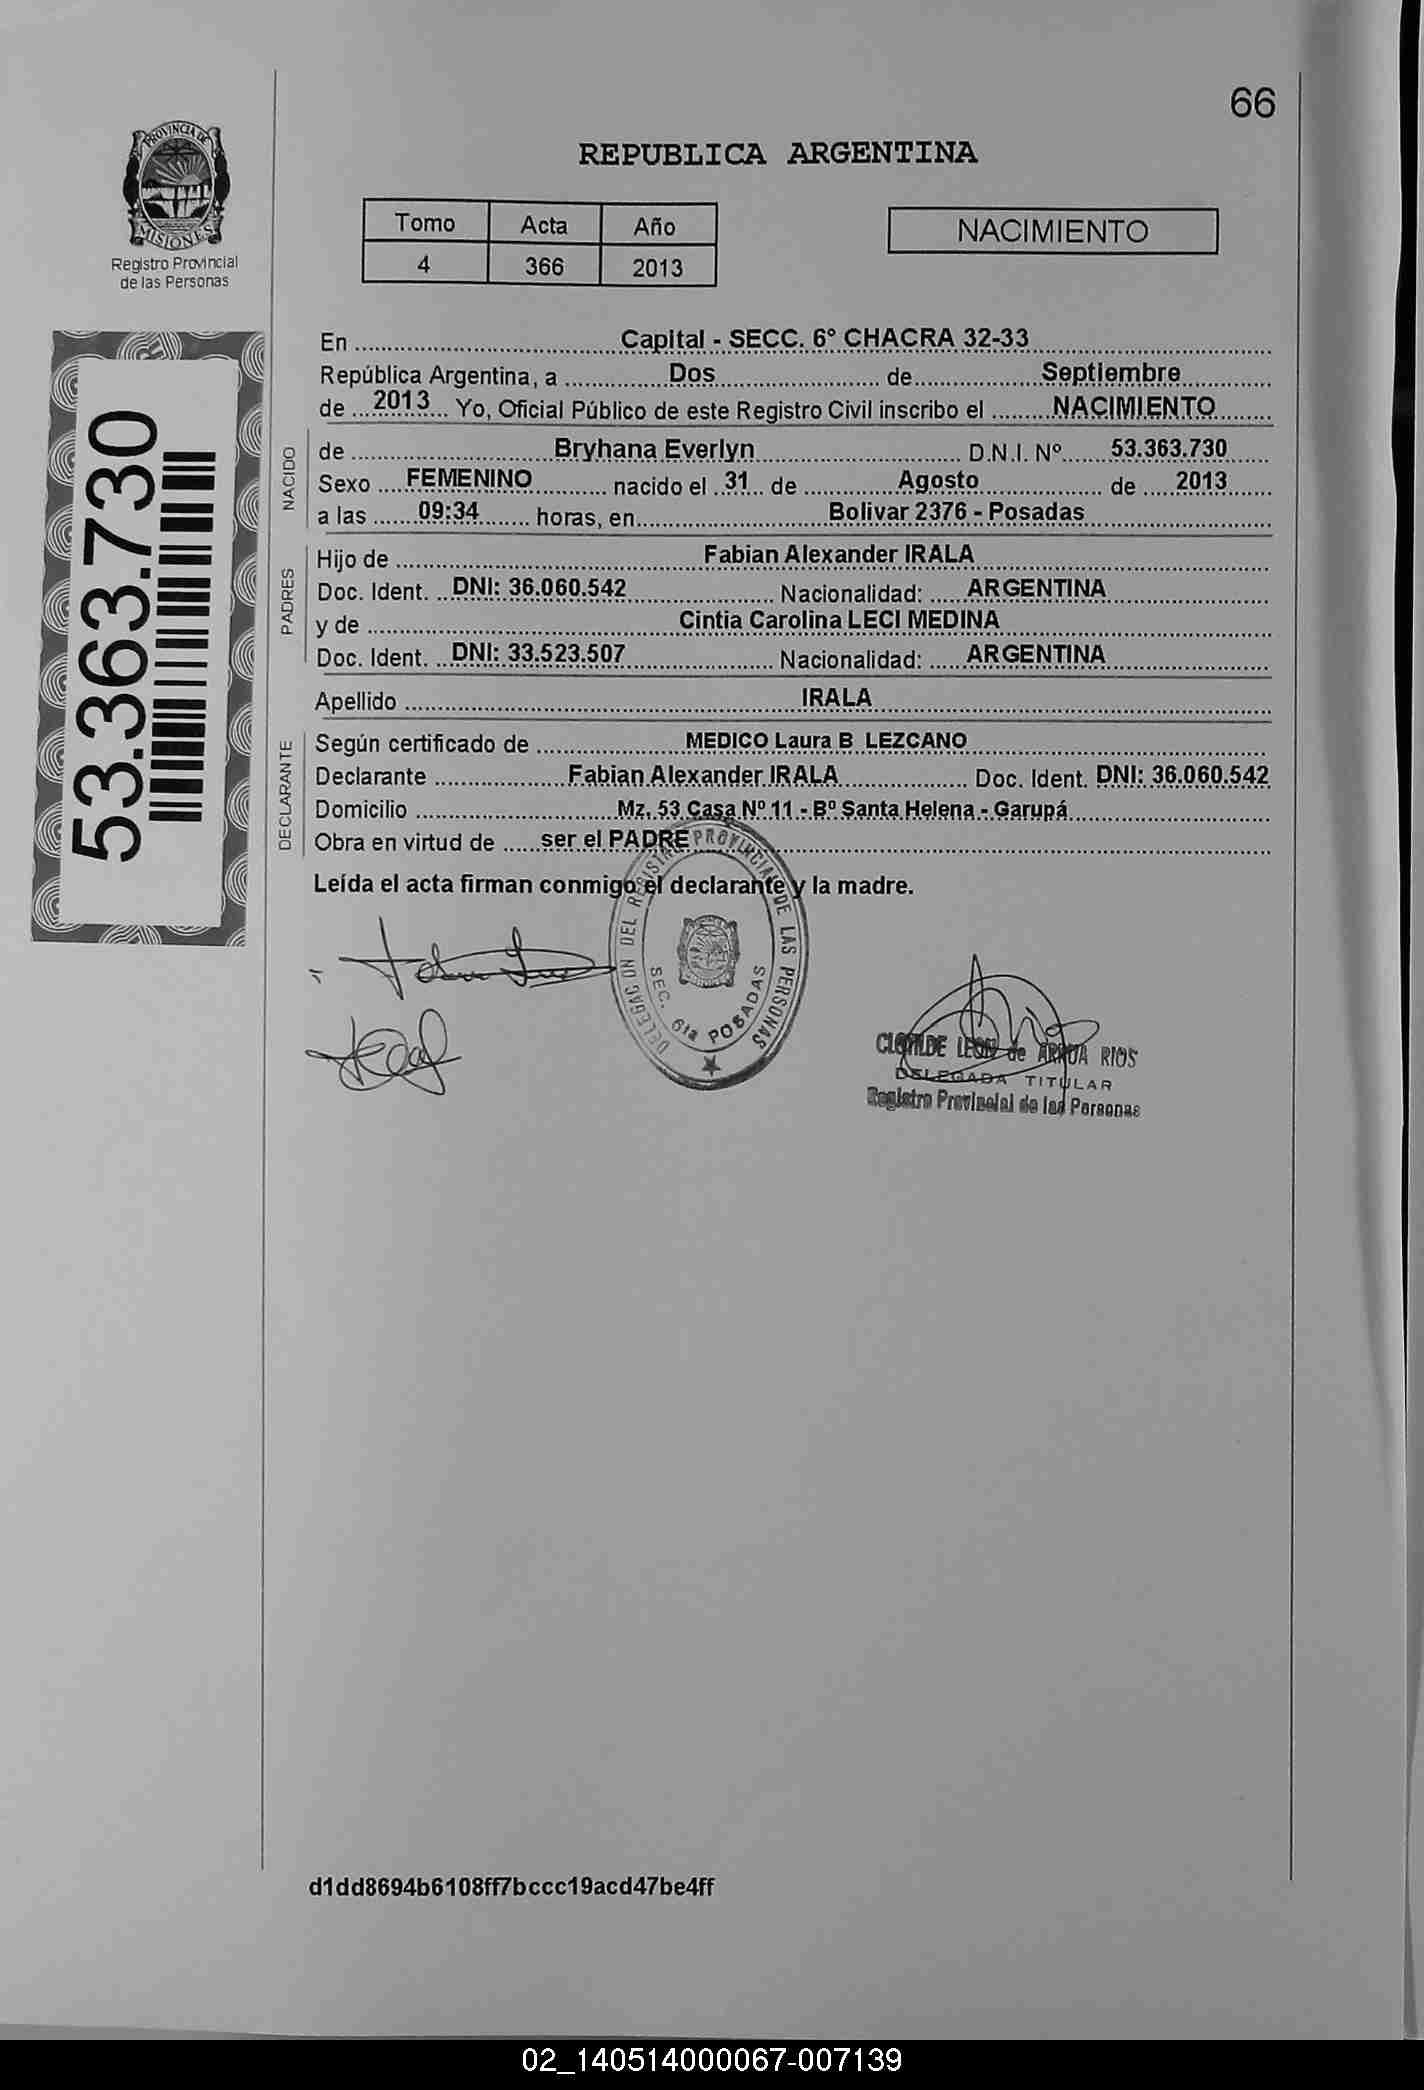 66
PROVINCIA DE
MISIONES
Registro Provincial
de las Personas
REPUBLICA ARGENTINA
Tomo Acta Año
4 366 2013
NACIMIENTO
53.363.730
En Capital - SECC. 6° CHACRA 32-33
República Argentina, a Dos de Septiembre
de 2013 Yo, Oficial Público de este Registro Civil inscribo el NACIMIENTO
NACIDO
de Bryhana Everlyn D.N.I. Nº 53.363.730
Sexo FEMENINO nacido el 31 de Agosto de 2013
a las 09:34 horas, en Bolivar 2376 - Posadas
PADRES
Hijo de Fabian Alexander IRALA
Doc. Ident. DNI: 36.060.542 Nacionalidad: ARGENTINA
y de Cintia Carolina LECI MEDINA
Doc. Ident. DNI: 33.523.507 Nacionalidad: ARGENTINA
Apellido IRALA
DECLARANTE
Según certificado de MEDICO Laura B LEZCANO
Declarante Fabian Alexander IRALA Doc. Ident. DNI: 36.060.542
Domicilio Mz. 53 Casa Nº 11 - Bº Santa Helena - Garupá
Obra en virtud de ser el PADRE
Leída el acta firman conmigo el declarante y la madre.
DELEGACION DEL REGISTRO PROVINCIAL DE LAS PERSONAS
SEC. 6ta POSADAS
CLOTILDE LEON de ARRUA RIOS
DELEGADA TITULAR
Registro Provincial de las Personas
d1dd8694b6108ff7bccc19acd47be4ff
02_140514000067-007139